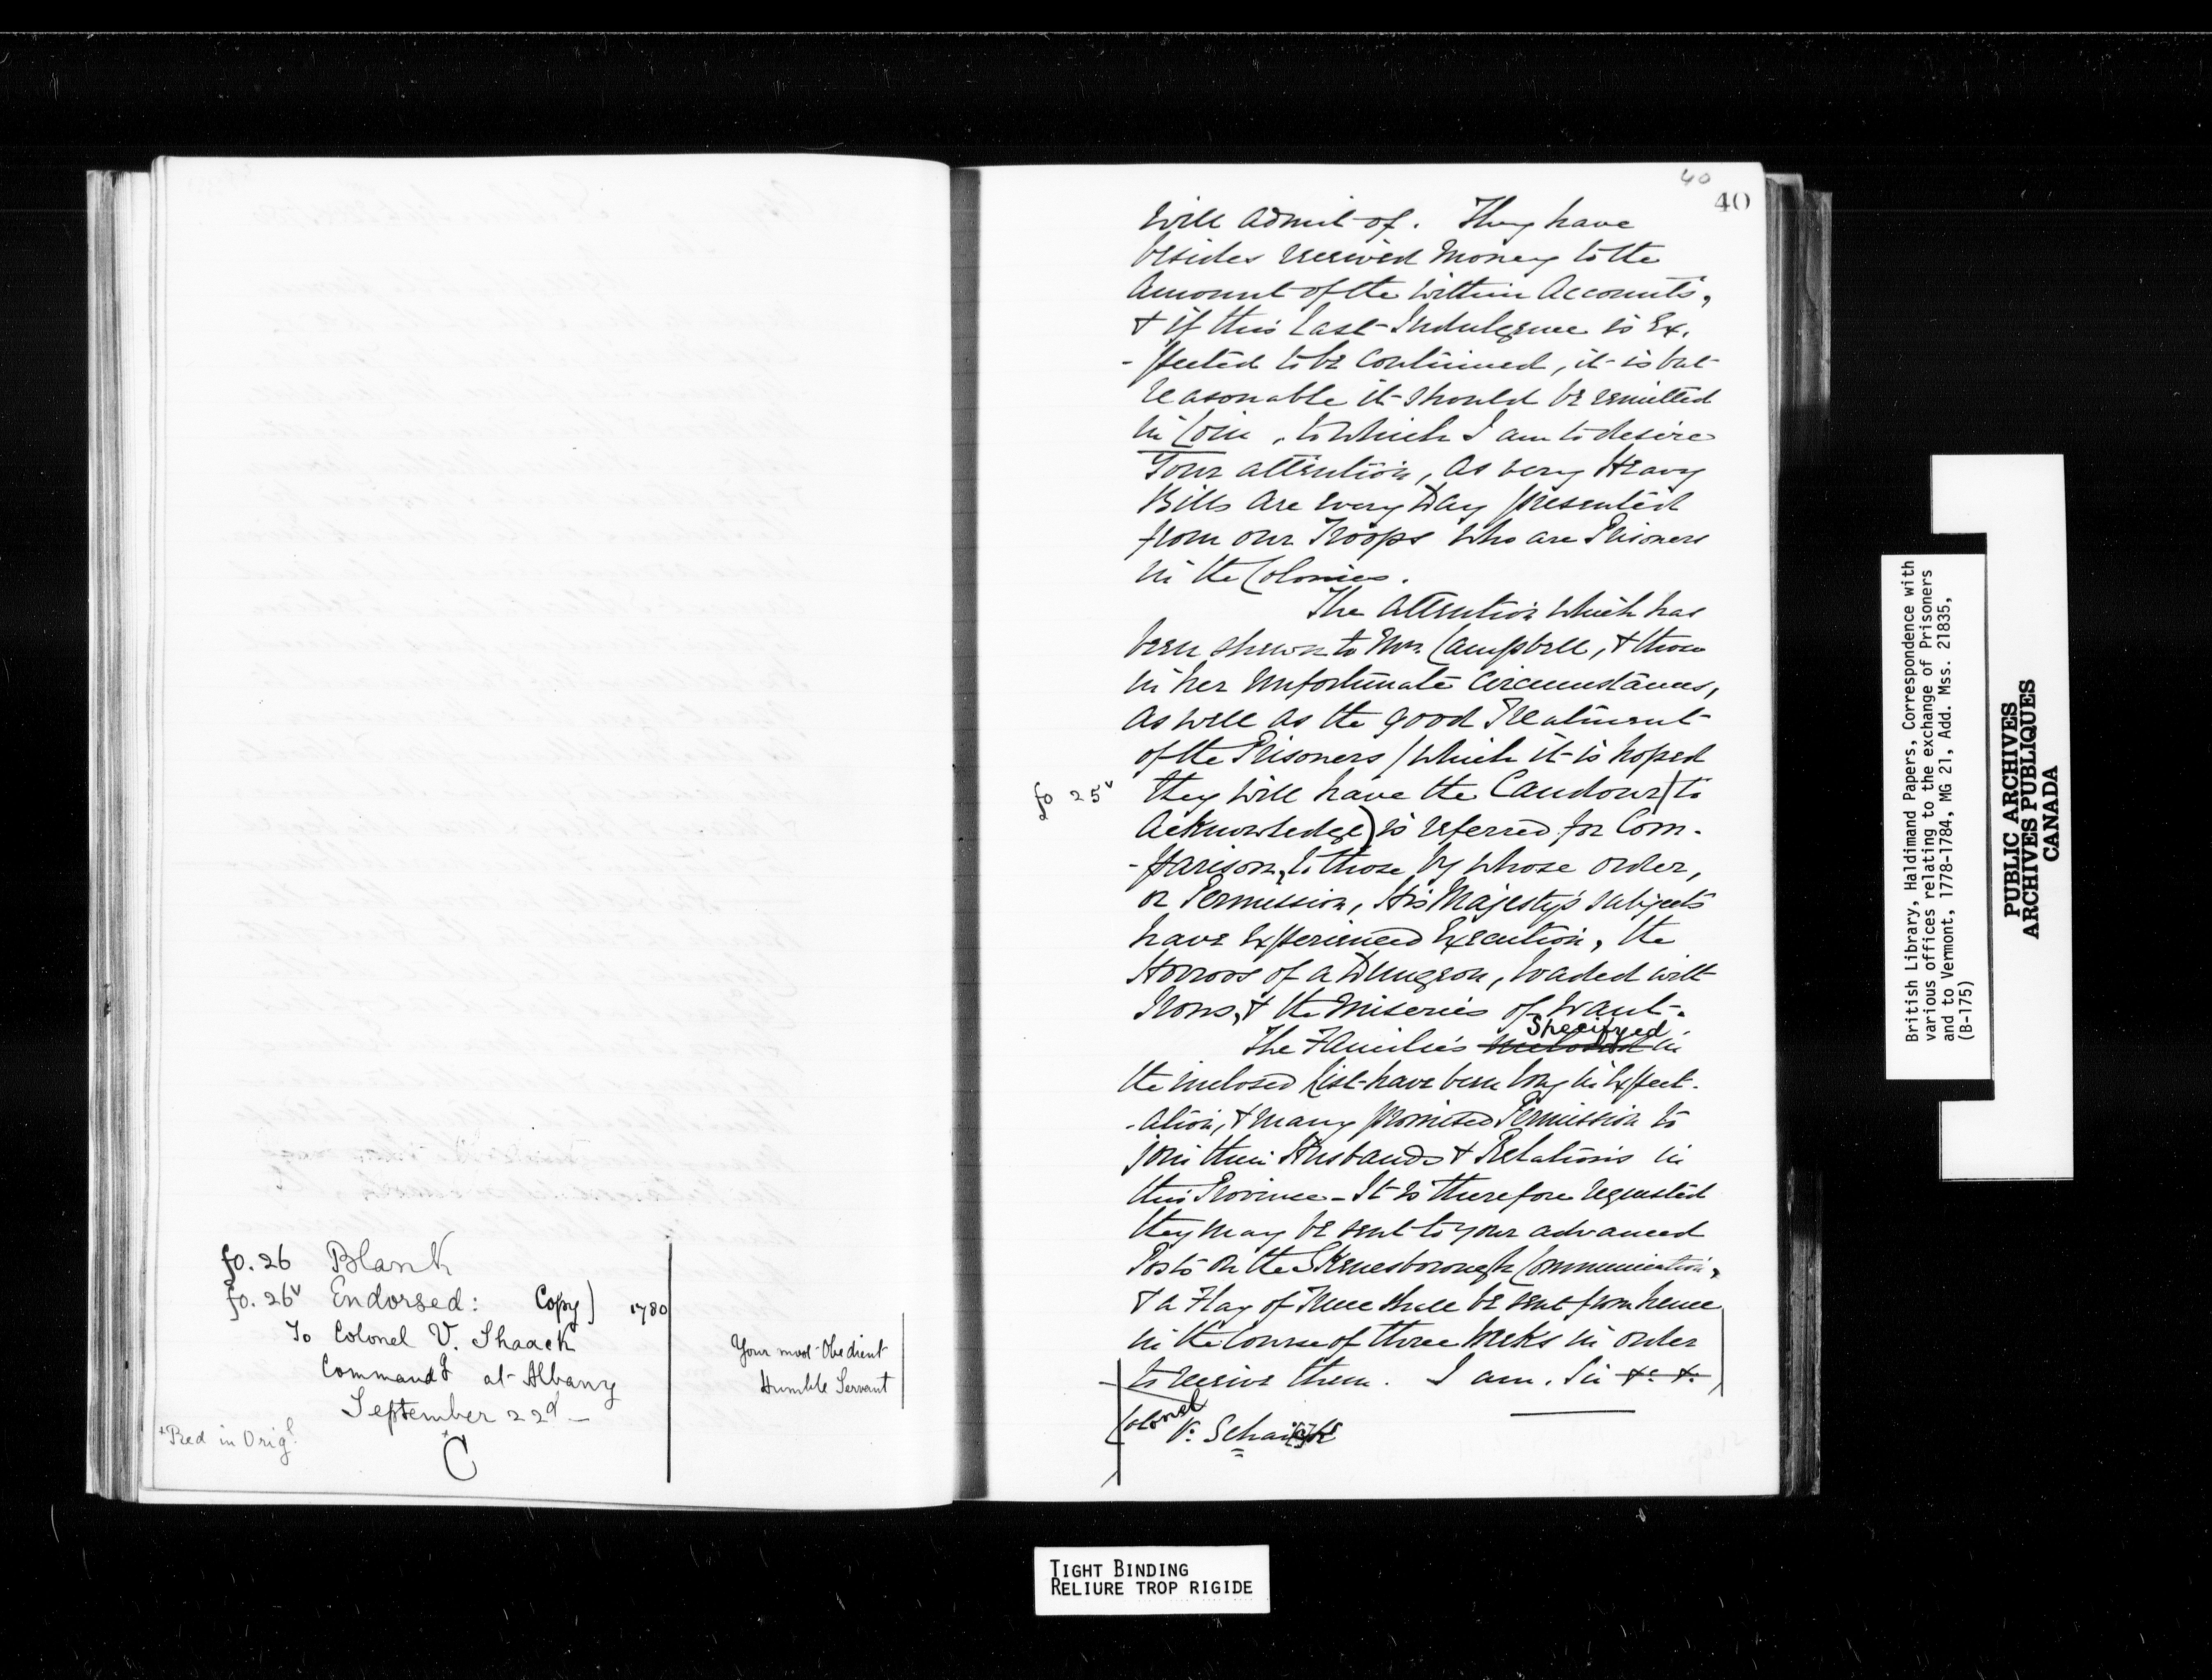 fo. 26 Blank
fo. 26v Endorsed: Copy) 1780
To Colonel V. Shaack
Command t at Albany
September 22d —
*Red in Origl.
*C
Your most Obedient
Humble Servant
40
40
will admit of. They have
besides received Money to the
Amount of the within Accounts,
& if this last Indulgence is Ex-
-pected to be Continued, it is but
reasonable it should be remitted
in Coin, to which I am to desire
Your attention, as very Heavy
Bills are every Day presented
from our Troops who are Prisoners
in the Colonies.
The Attention which has
been shewn to Mrs. Campbell, & those
in her Unfortunate Circumstances,
as well as the good Treatment
of the Prisoners (which it is hoped
fo 25v they will have the Candour to
Acknowledge) is referred for Com-
-parison, to those by whose order,
or Permission, His Majesty's subjects
have Experienced Execution, the
Horrors of a Dungeon, loaded with
Irons, & the Miseries of Want.
Specifyed
The Families in
the inclosed List have been long in Expect-
-ation, & many promised Permission to
join their Husbands & Relations in
this Province — It is therefore requested
they may be sent to your advanced
Posts on the Skenesborough Communication,
& a Flag of Truce shall be sent from hence
in the Course of three Weeks in order
to receive them. I am, Sir &c. &c.
Colonel
V. Schaick
British Library, Haldimand Papers, Correspondence with
various offices relating to the exchange of Prisoners
and to Vermont, 1778-1784, MG 21, Add. Mss. 21835,
(B-175)
PUBLIC ARCHIVES
ARCHIVES PUBLIQUES
CANADA
TIGHT BINDING
RELIURE TROP RIGIDE